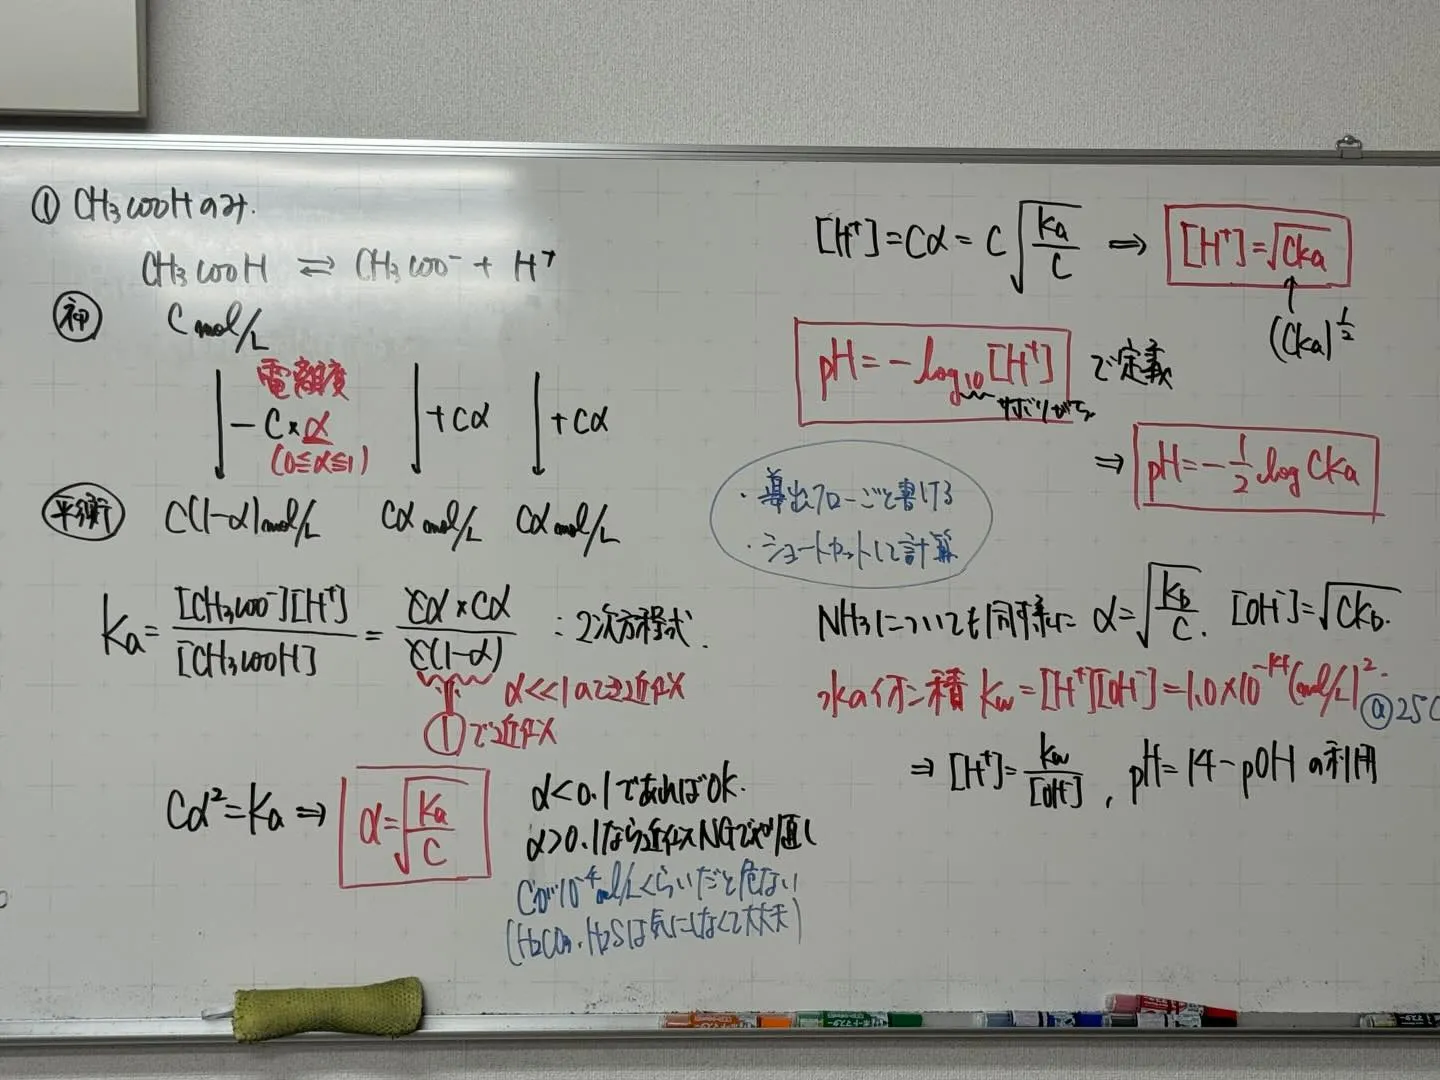 ① CH₃COOHのみ.
CH₃COOH ⇄ CH₃COO⁻ + H⁺
初 C mol/L
電離度
-C×α +Cα +Cα
(0≦α≦1)
平衡 C(1-α)mol/L Cα mol/L Cα mol/L
Ka = [CH₃COO⁻][H⁺]/[CH₃COOH] = Cα×Cα/C(1-α) : 2次方程式.
α<<1のとき近似
①で近似
Cα²=Ka ⇒ α=√(Ka/C)
α<0.1であればOK.
α>0.1なら近似NGでやり直し
Cが10⁻⁴mol/Lくらいだと危ない
(H₂CO₃、H₂Sは気にしなくて大丈夫)
[H⁺]=Cα=C√(Ka/C) ⇒ [H⁺]=√CKa
(CKa)^½
pH=-log₁₀[H⁺] で定義
サボりがち
⇒ pH=-½logCKa
・導出フローごと書ける
・ショートカットして計算
NH₃についても同様に α=√(Kb/C). [OH⁻]=√CKb.
水のイオン積 Kw=[H⁺][OH⁻]=1.0×10⁻¹⁴(mol/L)².
@25℃
⇒ [H⁺]=Kw/[OH⁻], pH=14-pOH の利用